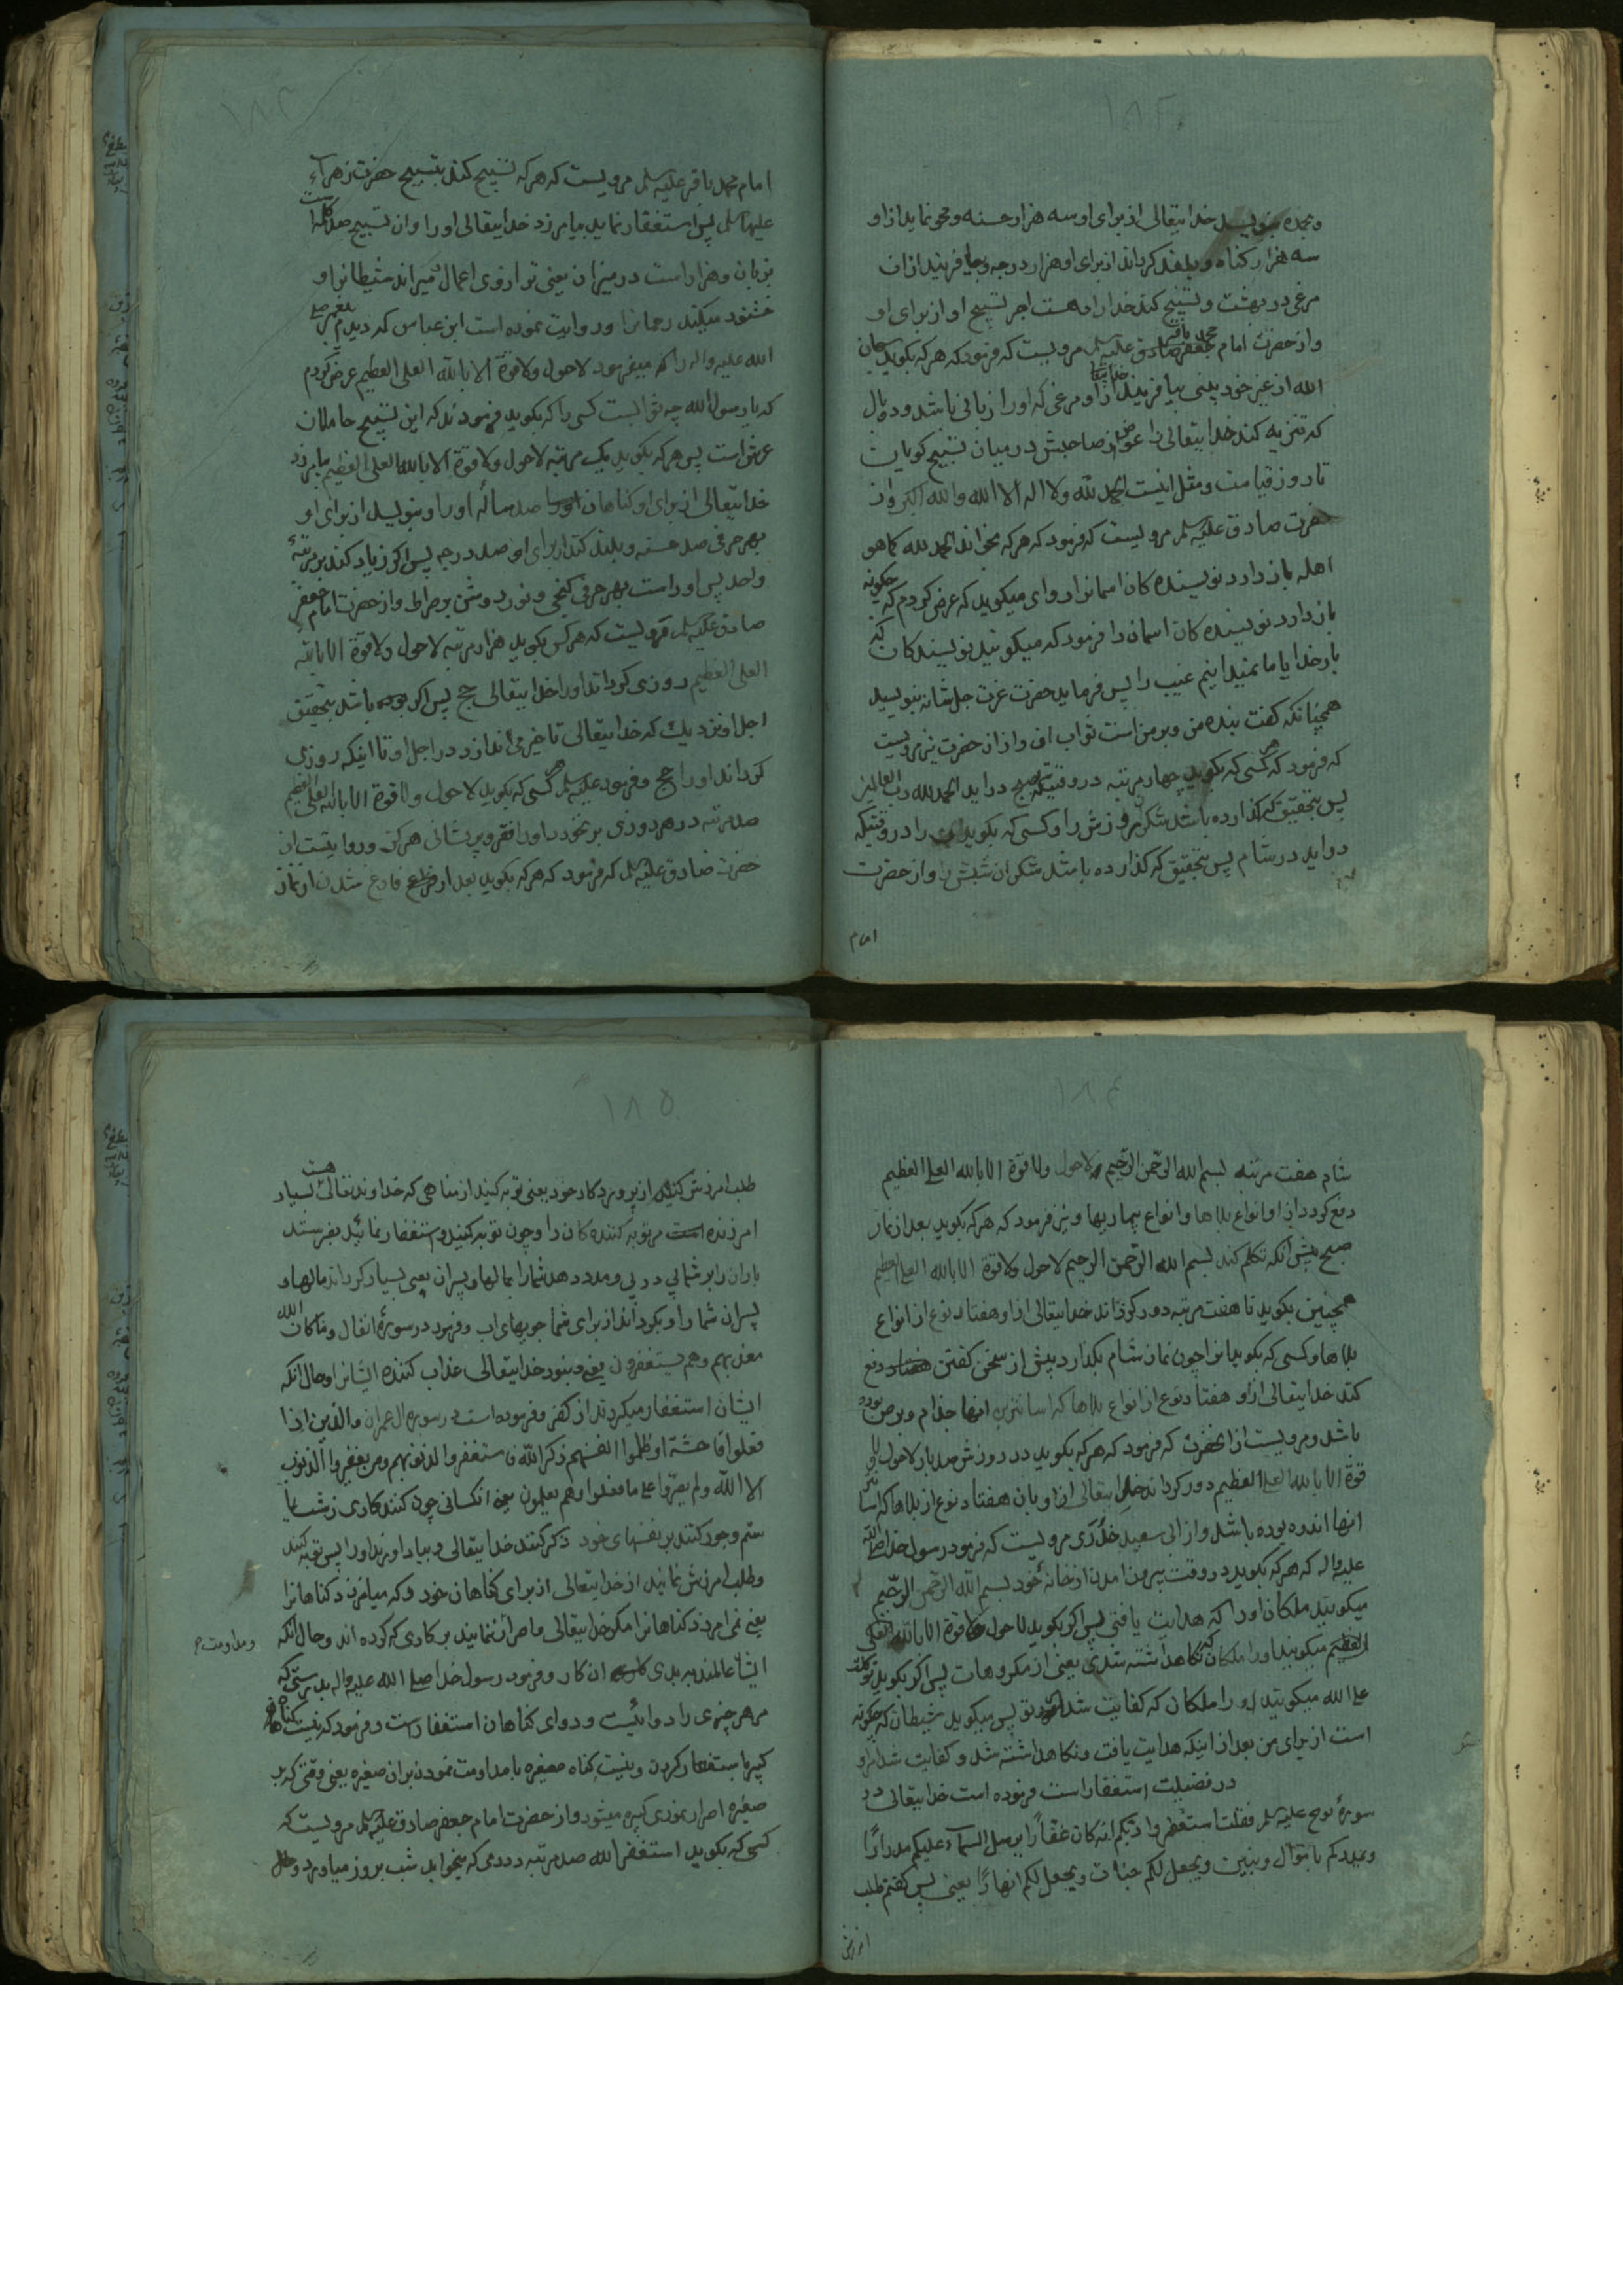 ۱۸۲
و بحمده بنویسد خدایتعالی از برای او سه هزار حسنه و محو نماید از او
سه هزار کناه و بلند کرداند از برای او هزار درجه و بیافریند از ان
مرغی در بهشت و تسبیح کند خدا را و هست اجر تسبیح او از برای او
و از حضرت امام محمد باقر علیه سلم مرویست که فرمود که هر که بکوید سبحان
الله از غیر خود بینی بیافریند خدایتعالی از او مرغی که او را زبانی باشد و دو بال
که تنزیه کند خدایتعالی را عوض از صاحبش در میان تسبیح کویان
تا روز قیامت و مثل اینست الحمد لله ولا اله الا الله والله اکبر و از
حضرت صادق علیه سلم مرویست که فرمود که هر که بخواند الحمد لله کما هو
اهله باز دارد نویسنده کان اسمانرا راوی میکوید که عرض کردم که چکونه
باز دارد نویسنده کان اسمان را فرمود که میکویند نویسندکان که
بار خدایا ما نمیدانیم غیب را پس فرماید حضرت عزت جل شانه بنویسید
همچنانکه کفت بنده من و بر من است ثواب ان و از ان حضرت نیز مرویست
که فرمود که هر کسی که بکوید چهار مرتبه در وقتیکه صبح در اید الحمد لله رب العالمین
پس بتحقیق که کذارده باشد شکر روزش را و کسی که بکوید را در وقتیکه
در اید در شام پس بتحقیق که کذارده باشد شکر ان شبش را و از حضرت
امام
۱۸۳
امام محمد باقر علیه سلم مرویست که هر که تسبیح کند بتسبیح حضرت زهراء
علیها سلم پس استغفار نماید بیامرزد خدایتعالی او را و ان تسبیح صد کلمه است
بزبان و هزار است در میزان یعنی ترازوی اعمال و میراند شیطانرا و
خشنود میکند رحمانرا و روایت نموده است ابن عباس که دیدم پیغمبر صلی
الله علیه و اله را که میفرمود لاحول ولا قوة الا بالله العلی العظیم عرض کردم
که یا رسول الله چه ثوابست کسی را که بکوید فرمودند که این تسبیح حاملان
عرش است پس هر که بکوید یک مرتبه لاحول ولا قوة الا بالله العلی العظیم بیامرزد
خدایتعالی از برای او کناهان صد ساله او را و بنویسد از برای او
بهر حرفی صد حسنه و بلند کند از برای او صد درجه پس اکر زیاد کند بر مرتبه
واحد پس او راست بهر حرفی کنجی و نور روشن بر صراط و از حضرت امام جعفر
صادق علیه سلم مرویست که هر کس بکوید هزار مرتبه لاحول ولا قوة الا بالله
العلی العظیم روزی کرداند او را خدایتعالی حج پس اکر بوده باشد بتحقیق
اجل او نزدیک که خدایتعالی تاخیر می اندازد در اجل او تا اینکه روزی
کرداند او را حج و فرمود علیه سلم هر کسی که بکوید لاحول ولا قوة الا بالله العلی العظیم
صد مرتبه در هر روزی بر نخورد او را فقر و پریشانی هرکز و روایتست از
حضرت صادق علیه سلم که فرمود که هر که بکوید بعد از فارغ شدن از نماز
۱۸۴
شام هفت مرتبه بسم الله الرحمن الرحیم لاحول ولا قوة الا بالله العلی العظیم
دفع کردد از او انواع بلاها و انواع بیماریها و نیز فرمود که هر که بکوید بعد از نماز
صبح پیش انکه تکلم کند بسم الله الرحمن الرحیم لاحول ولا قوة الا بالله العلی العظیم
همچنین بکوید تا هفت مرتبه دور کرداند خدایتعالی از او هفتاد نوع از انواع
بلاها و کسی که بکوید انرا چون نماز شام بکذارد پیش از سخن کفتن دفع
کند خدایتعالی از او هفتاد نوع از انواع بلاها که اسانترین انها جذام و برص بوده
باشد و مرویست از انحضرت که فرمود که هر که بکوید در روزش صد بار لاحول ولا
قوة الا بالله العلی العظیم دور کرداند خدایتعالی از او بان هفتاد نوع از بلاها که اسانتر
انها اندوه بوده باشد و از ابی سعید خدری مرویست که فرمود رسول خدا صلی الله
علیه و اله که هر که بکوید در وقت بیرون امدن از خانه خود بسم الله الرحمن الرحیم
میکویند ملکان او را که هدایت یافتی پس اکر بکوید لاحول ولا قوة الا بالله العلی
العظیم میکویند او را ملکان که نکاهداشته شدی یعنی از مکروهات پس اکر بکوید توکلت
علی الله میکویند او را ملکان که کفایت شد تو پس میکوید شیطان که چکونه
است از برای من بعد از اینکه هدایت یافت و نکاهداشته شد و کفایت شد مر او
در فضیلت استغفار است فرموده است خدایتعالی در
سورهٔ نوح علیه سلم فقلت استغفروا ربکم انه کان غفارا یرسل السماء علیکم مدرارا
و یمددکم باموال و بنین و یجعل لکم جنات و یجعل لکم انهارا یعنی پس کفتم طلب
امرزش
۱۸۵
طلب امرزش کنید از پروردکار خود یعنی توبه کنید از مناهی که خداوند تعالی هست بسیار
امرزنده مر توبه کننده کان را و چون توبه کنید و استغفار نمائید بفرستد
باران را بر شما پی در پی و مدد دهد شما را بمالها و پسران یعنی بسیار کرداند مالها و
پسران شما را و بکرداند از برای شما جویهای اب و فرمود در سورهٔ انفال و ما کان الله
معذبهم وهم یستغفرون یعنی و نبود خدایتعالی عذاب کننده ایشانرا و حال انکه
ایشان استغفار میکردند از کفر و فرموده است در سوره ال عمران والذین اذا
فعلوا فاحشة او ظلموا انفسهم ذکر الله فاستغفروا لذنوبهم ومن یغفروا الذنوب
الا الله ولم یصروا علی ما فعلوا وهم یعلمون یعنی انکسانی چون کنند کاری زشت یا
ستم وجور کنند بر نفسهای خود ذکر کنند خدایتعالی و بیاد اورند او را پس توبه کنند
و طلب امرزش نمایند از خدایتعالی از برای کناهان خود و که میامرزد کناهانرا
یعنی نمی امرزد کناهانرا مکر خدایتعالی و اصرار ننمایند بر کاری که کرده اند و حال انکه
ومداومت م
ایشان عالمند ببدی ان کار و فرمود رسول خدا صلی الله علیه و اله بدرستی که
مر هر چیزی را دوائیست و دوای کناهان استغفار است و فرمود که نیست کناهان
کبیر با ستغفار کردن و نیست کناه صغیره با مداومت نمودن بران صغیره یعنی وقتی که بر
صغیره اصرار نمودی کبیره میشود و از حضرت امام جعفر صادق علیه سلم مرویست که
کسی که بکوید استغفر الله صد مرتبه در دمی که میخوابد شب بروز میاورد و حال